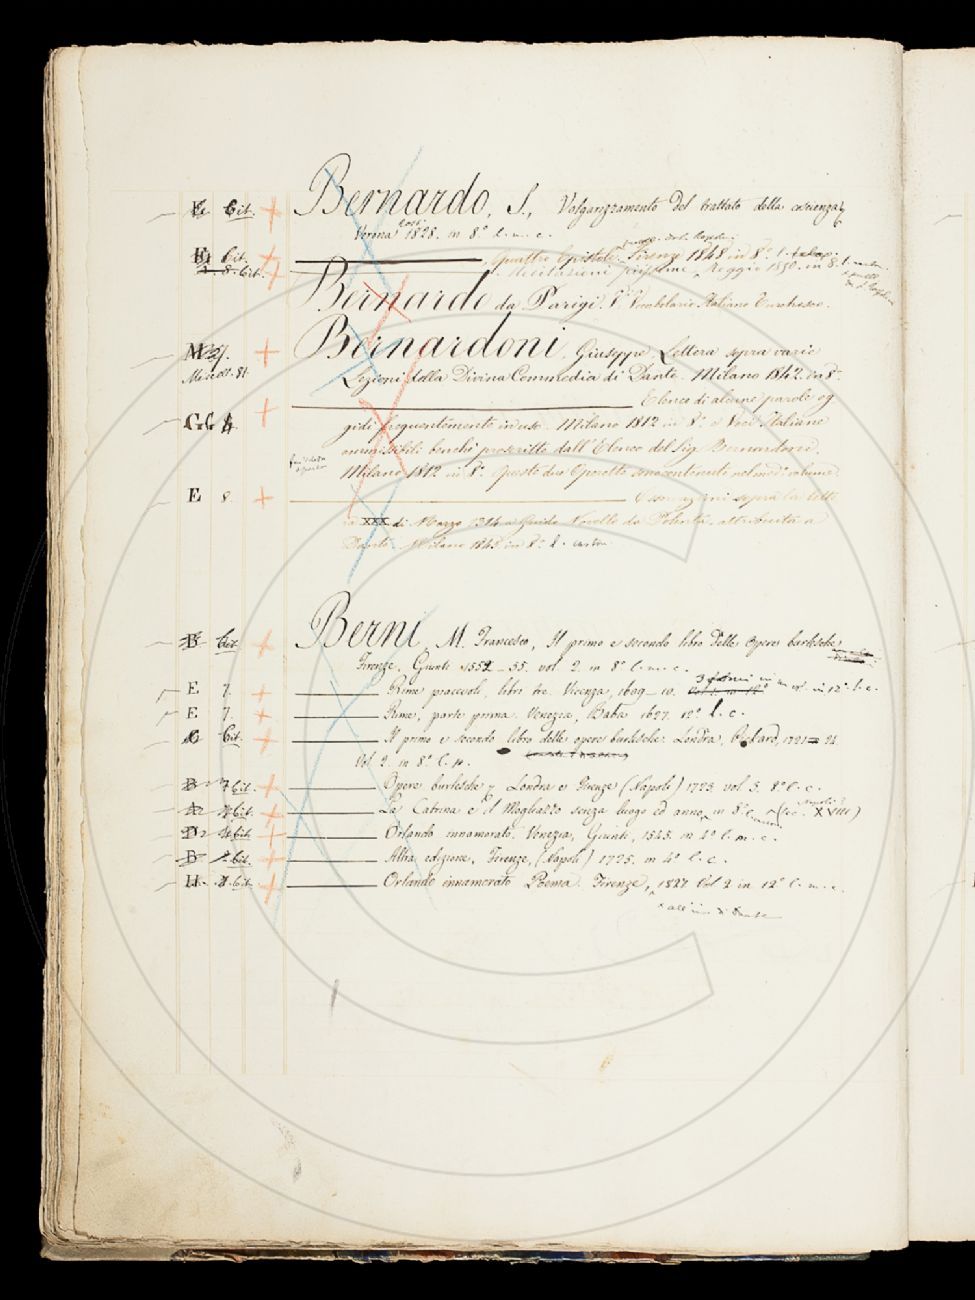 E Cit. Bernardo, S., Volgarizzamento del trattato della coscienza
Verona 1828. in 8° l. m. c.
E Cit. Quattre Epistole. Firenze 1848 in 8°
8. Cit. Recitazioni Reggio 1850. in 8°
Bernardo da Parigi. V. Vocabolario Italiano Turchesco.
M Bernardoni, Giuseppe, Lettera sopra varie
Miscell. 81. Lezioni della Divina Commedia di Dante. Milano 1842. in 8°
Elenco di alcune parole og
4 gidi frequentemente in uso. Milano 1812 in 8° e Voci Italiane
ammissibili benchè proscritte dall'Elenco del Sig. Bernardoni.
Milano 1812 in 8° Queste due Operette
E 8 sopra la lette
ra xxx di Marzo 1314 a Guido Novello da Polenta, attribuita a
Dante. Milano 1845 in 8°
B Cit. Berni, M. Francesco, Il primo e secondo libro delle Opere burlesche
Firenze, Giunti 1552–55. vol. 2. in 8° l. m. c.
E 7. Rime piacevoli, libri tre. Vicenza, 1609–10. in 12° l. c.
E 7. Rime, parte prima. Venezia, Baba 1627. 12° l. c.
Cit. Il primo e secondo libro delle opere burlesche. Londra, Pickard, 1721 = 24
Vol. 2. in 8°
B 7 Cit. Opere burlesche Londra e Firenze (Napoli) 1723 vol. 3. 8° l. c.
Cit. La Catrina e il Mogliazzo senza luogo ed anno, in 8° (sec. XVIII)
Cit. Orlando innamorato, Venezia, Giunti, 1545. in 4° l. m. c.
B 2 Cit. Altra edizione, Firenze, (Napoli) 1725. in 4° l. c.
H Cit. Orlando innamorato Poema. Firenze, 1827 Vol 2 in 12° l. m. c.